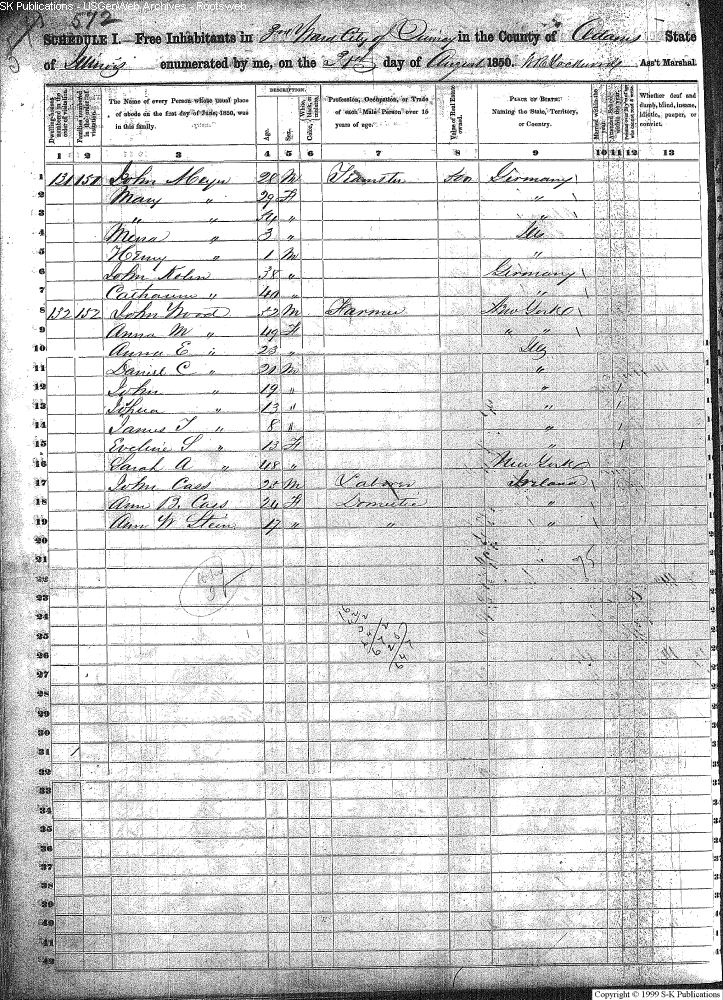 SK Publications - USGenWeb Archives - Rootsweb
572
SCHEDULE I. Free Inhabitants in 3rd Ward City of Quincy in the County of Adams State
of Illinois enumerated by me, on the day of August 1850. Ass't Marshal
DESCRIPTION.
Dwelling-houses numbered in the order of visitation.
Families numbered in the order of visitation.
The Name of every Person whose usual place of abode on the first day of June, 1850, was in this family.
Age.
Sex.
Color, White, black, or mulatto.
Profession, Occupation, or Trade of each Male Person over 15 years of age.
Value of Real Estate owned.
PLACE OF BIRTH. Naming the State, Territory, or Country.
Married within the year.
Attended School within the year.
Whether deaf and dumb, blind, insane, idiotic, pauper, or convict.
1 2 3 4 5 6 7 8 9 10 11 12 13
1 131 151 John Meyer 28 M Teamster 500 Germany 1
2 Mary " 29 F " 1
3 " " "
4 " 3 " Ills
5 Henry " 1 M "
6 John 38 " Germany
7 Catharine " 40 " "
8 132 152 John Wood 52 M Farmer New York
9 Anna M " 49 F " "
10 Anna E " 23 " Ills
11 Daniel C " 21 M "
12 John " 19 " " 1
13 Joshua " 13 " " 1
14 James T " 8 " " 1
15 Eveline S " 13 F " 1
16 Sarah A " 48 " New York
17 John Cass 25 M Laborer Ireland
18 Ann B. Cass 26 F Domestic "
19 Ann W Stein 17 " " "
20
21
22
23
24
25
26
27
28
29
30
31
32
33
34
35
36
37
38
39
40
41
42
Copyright © 1999 S-K Publications